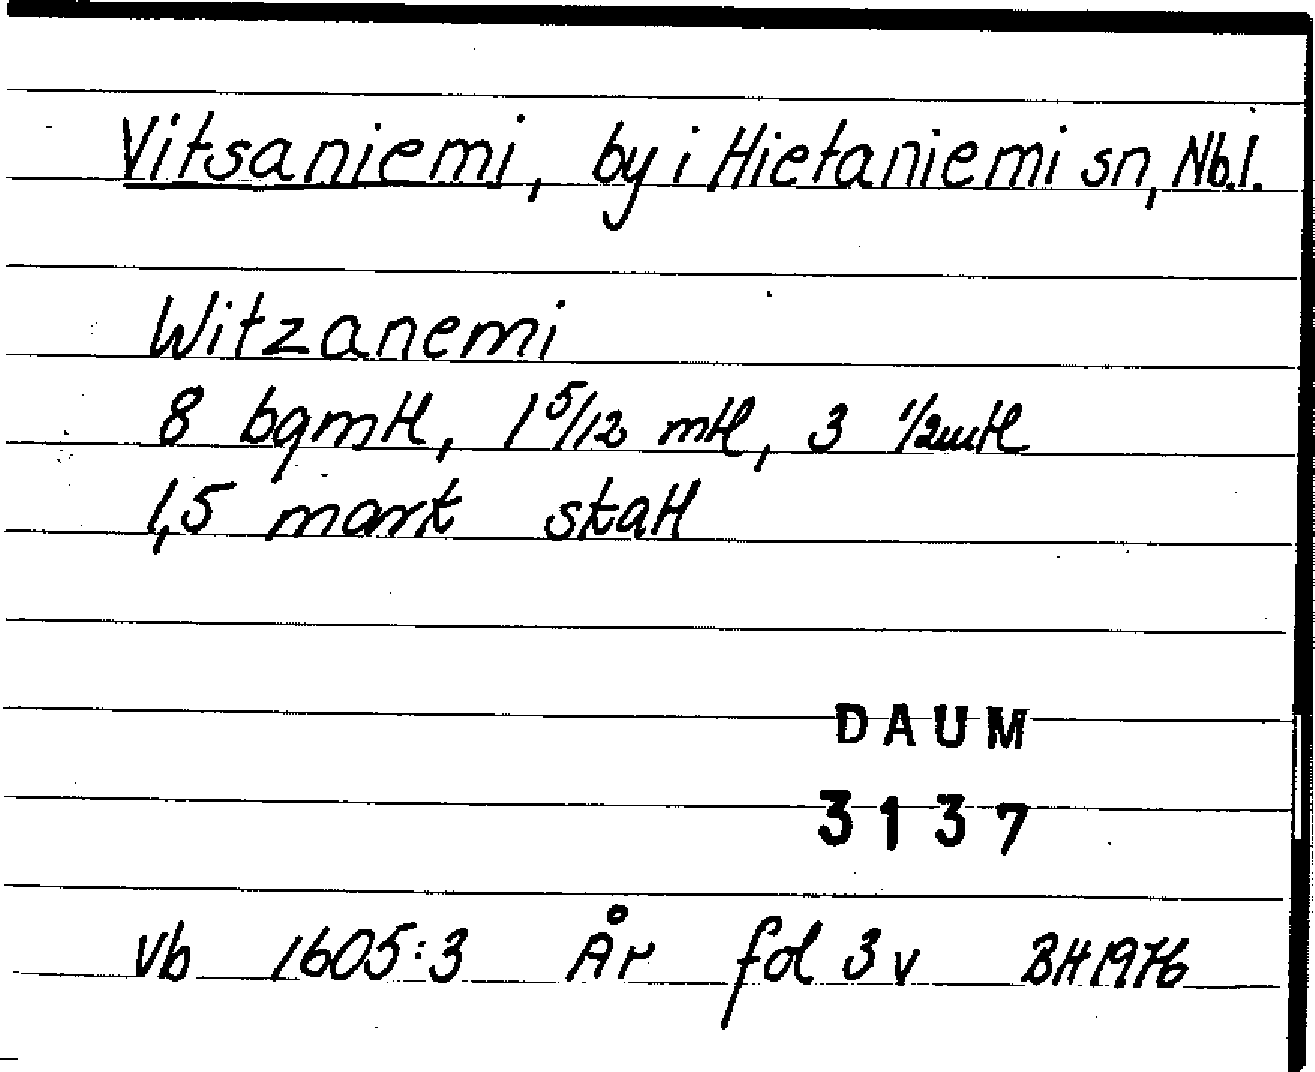 Vitsaniemi, by i Hietaniemi sn, Nb.l.
Witzanemi
8 bgmtl, 1 5/12 mtl, 3 1/2mtl
1,5 mark skatt
DAUM
3137
Vb 1605:3 År fol 3v BH 1976